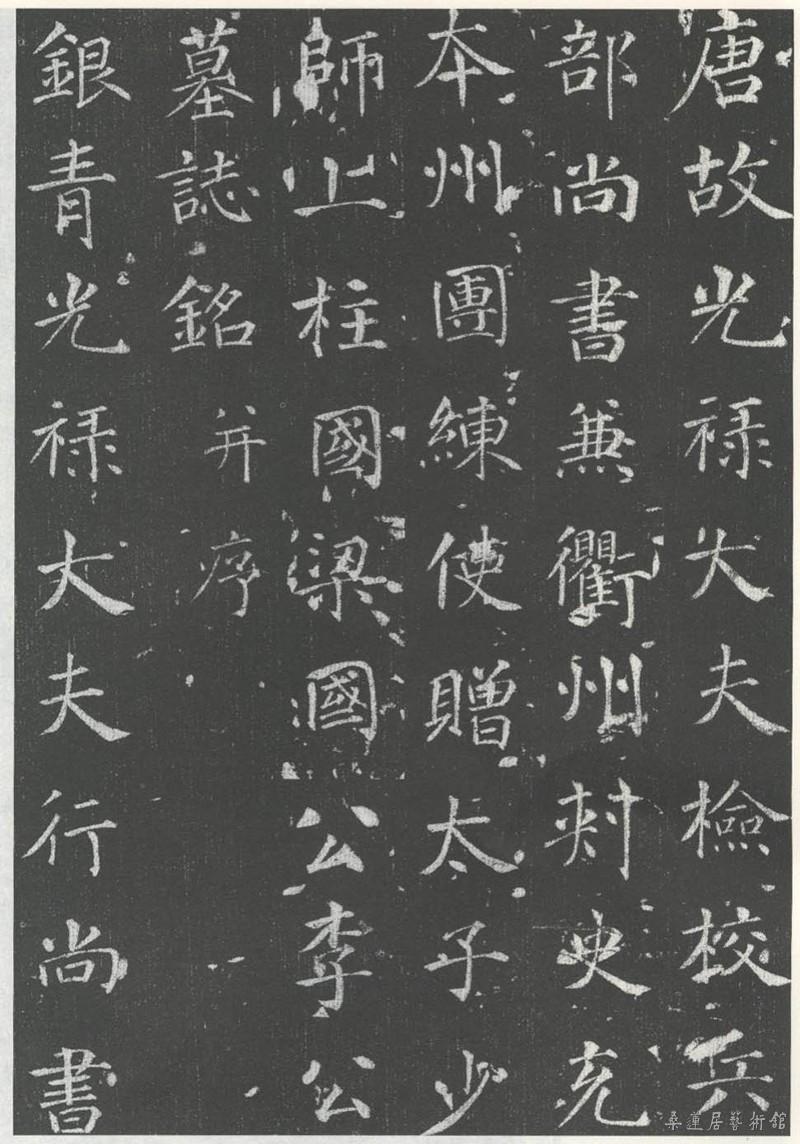 唐故光祿大夫檢校兵
部尚書兼衢州刾史充
本州團練使贈太子少
師上柱國梁國公李公
墓誌銘并序
銀青光祿大夫行尚書
桑蓮居藝術館